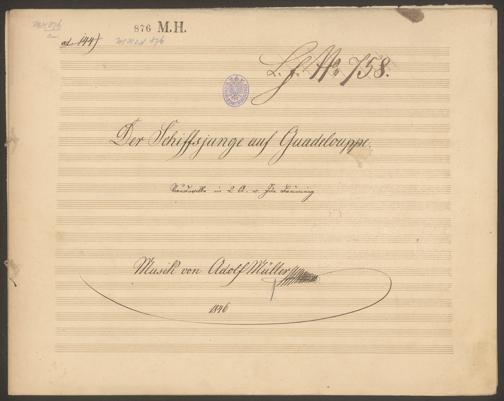 876 M.H.
L. f. No 758.
Der Schiffsjunge auf Guadelouppe.
Vaudeville in 2 A. v.
Musik von Adolf Müller
1846